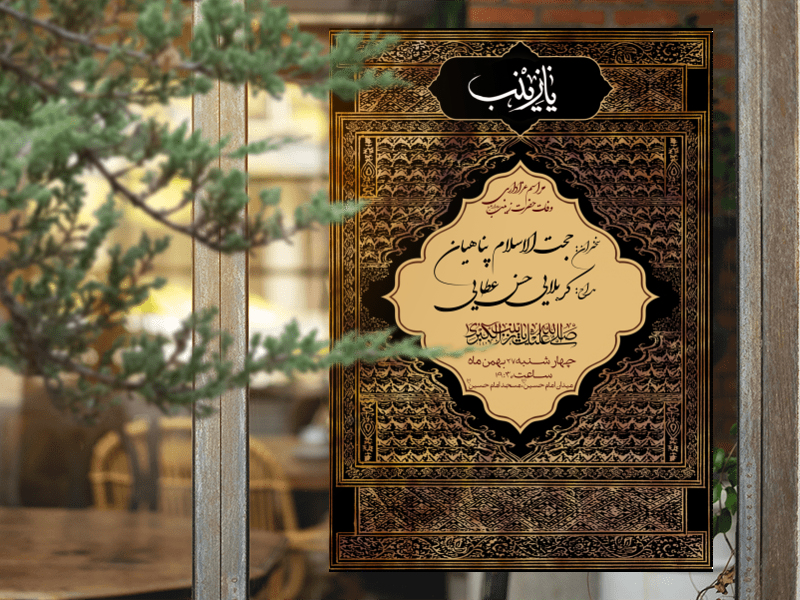 یا زینب
مراسم عزاداری
وفات حضرت زینب
سخنران: حجت الاسلام پناهیان
مداح: کربلایی حسن عطایی
صلی الله علیک یا زینب الکبری
چهارشنبه ۲۷ بهمن ماه
ساعت ۱۹:۳۰
میدان امام حسین، مسجد امام حسین